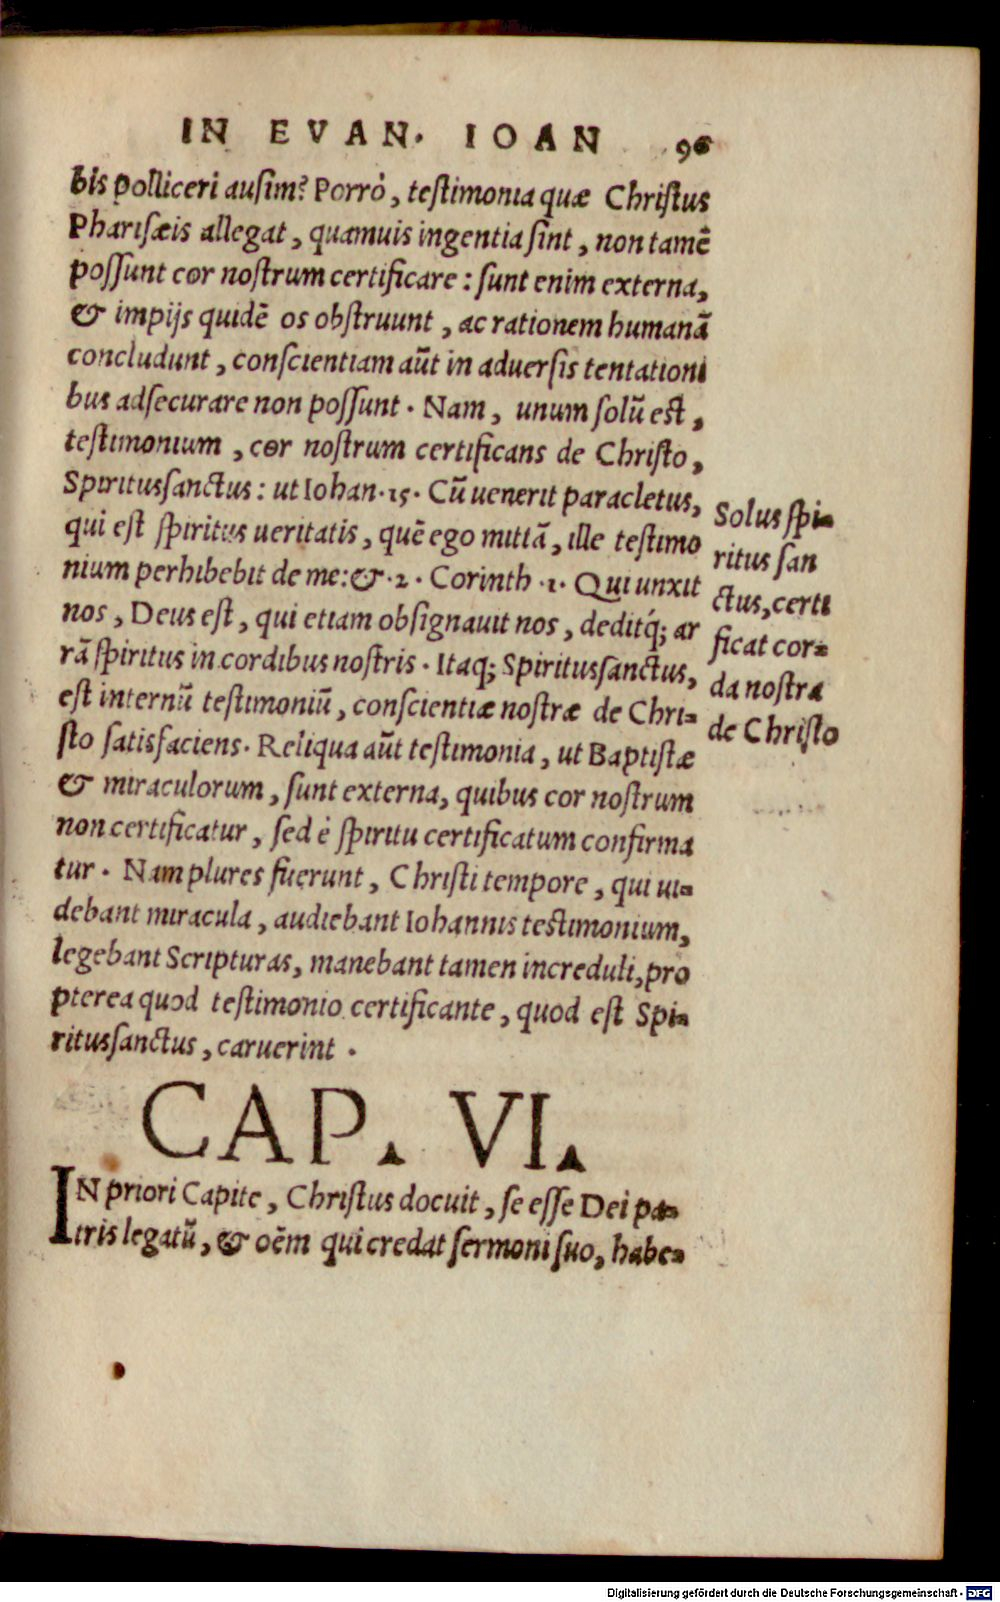 IN EVAN. IOAN 96
bis polliceri ausim? Porrò, testimonia quæ Christus
Pharisæis allegat, quamuis ingentia sint, non tamẽ
possunt cor nostrum certificare: sunt enim externa,
& impijs quidẽ os obstruunt, ac rationem humanã
concludunt, conscientiam aũt in aduersis tentationi
bus adsecurare non possunt. Nam, unum solũ est,
testimonium, cor nostrum certificans de Christo,
Spiritussanctus: ut Iohan.15. Cũ uenerit paracletus,
qui est spiritus ueritatis, quẽ ego mittã, ille testimo
nium perhibebit de me: & .2. Corinth .1. Qui unxit
nos, Deus est, qui etiam obsignauit nos, deditq́; ar
rã spiritus in cordibus nostris. Itaq; Spiritussanctus,
est internũ testimoniũ, conscientiæ nostræ de Chri-
sto satisfaciens. Reliqua aũt testimonia, ut Baptistæ
& miraculorum, sunt externa, quibus cor nostrum
non certificatur, sed è spiritu certificatum confirma
tur. Nam plures fuerunt, Christi tempore, qui ui-
debant miracula, audiebant Iohannis testimonium,
legebant Scripturas, manebant tamen increduli, pro
pterea quod testimonio certificante, quod est Spi-
ritussanctus, caruerint.
Solus spi-
ritus san
ctus, certi
ficat cor-
da nostra
de Christo
CAP. VI.
IN priori Capite, Christus docuit, se esse Dei pa-
tris legatũ, & oẽm qui credat sermoni suo, habe-
Digitalisierung gefördert durch die Deutsche Forschungsgemeinschaft - DFG